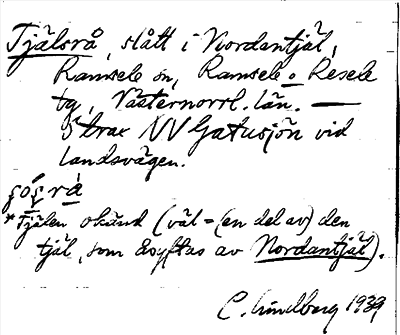 Tjälsrå, slått i Nordantjäl,
Ramsele sn, Ramsele o Resele
tg, Västernorrl. län. —
Strax NV Gatusjön vid
landsvägen.
* Tjälen okänd (väl = (en del av) den
tjäl, som åsyftas av Nordantjäl).
C. Lindberg 1939